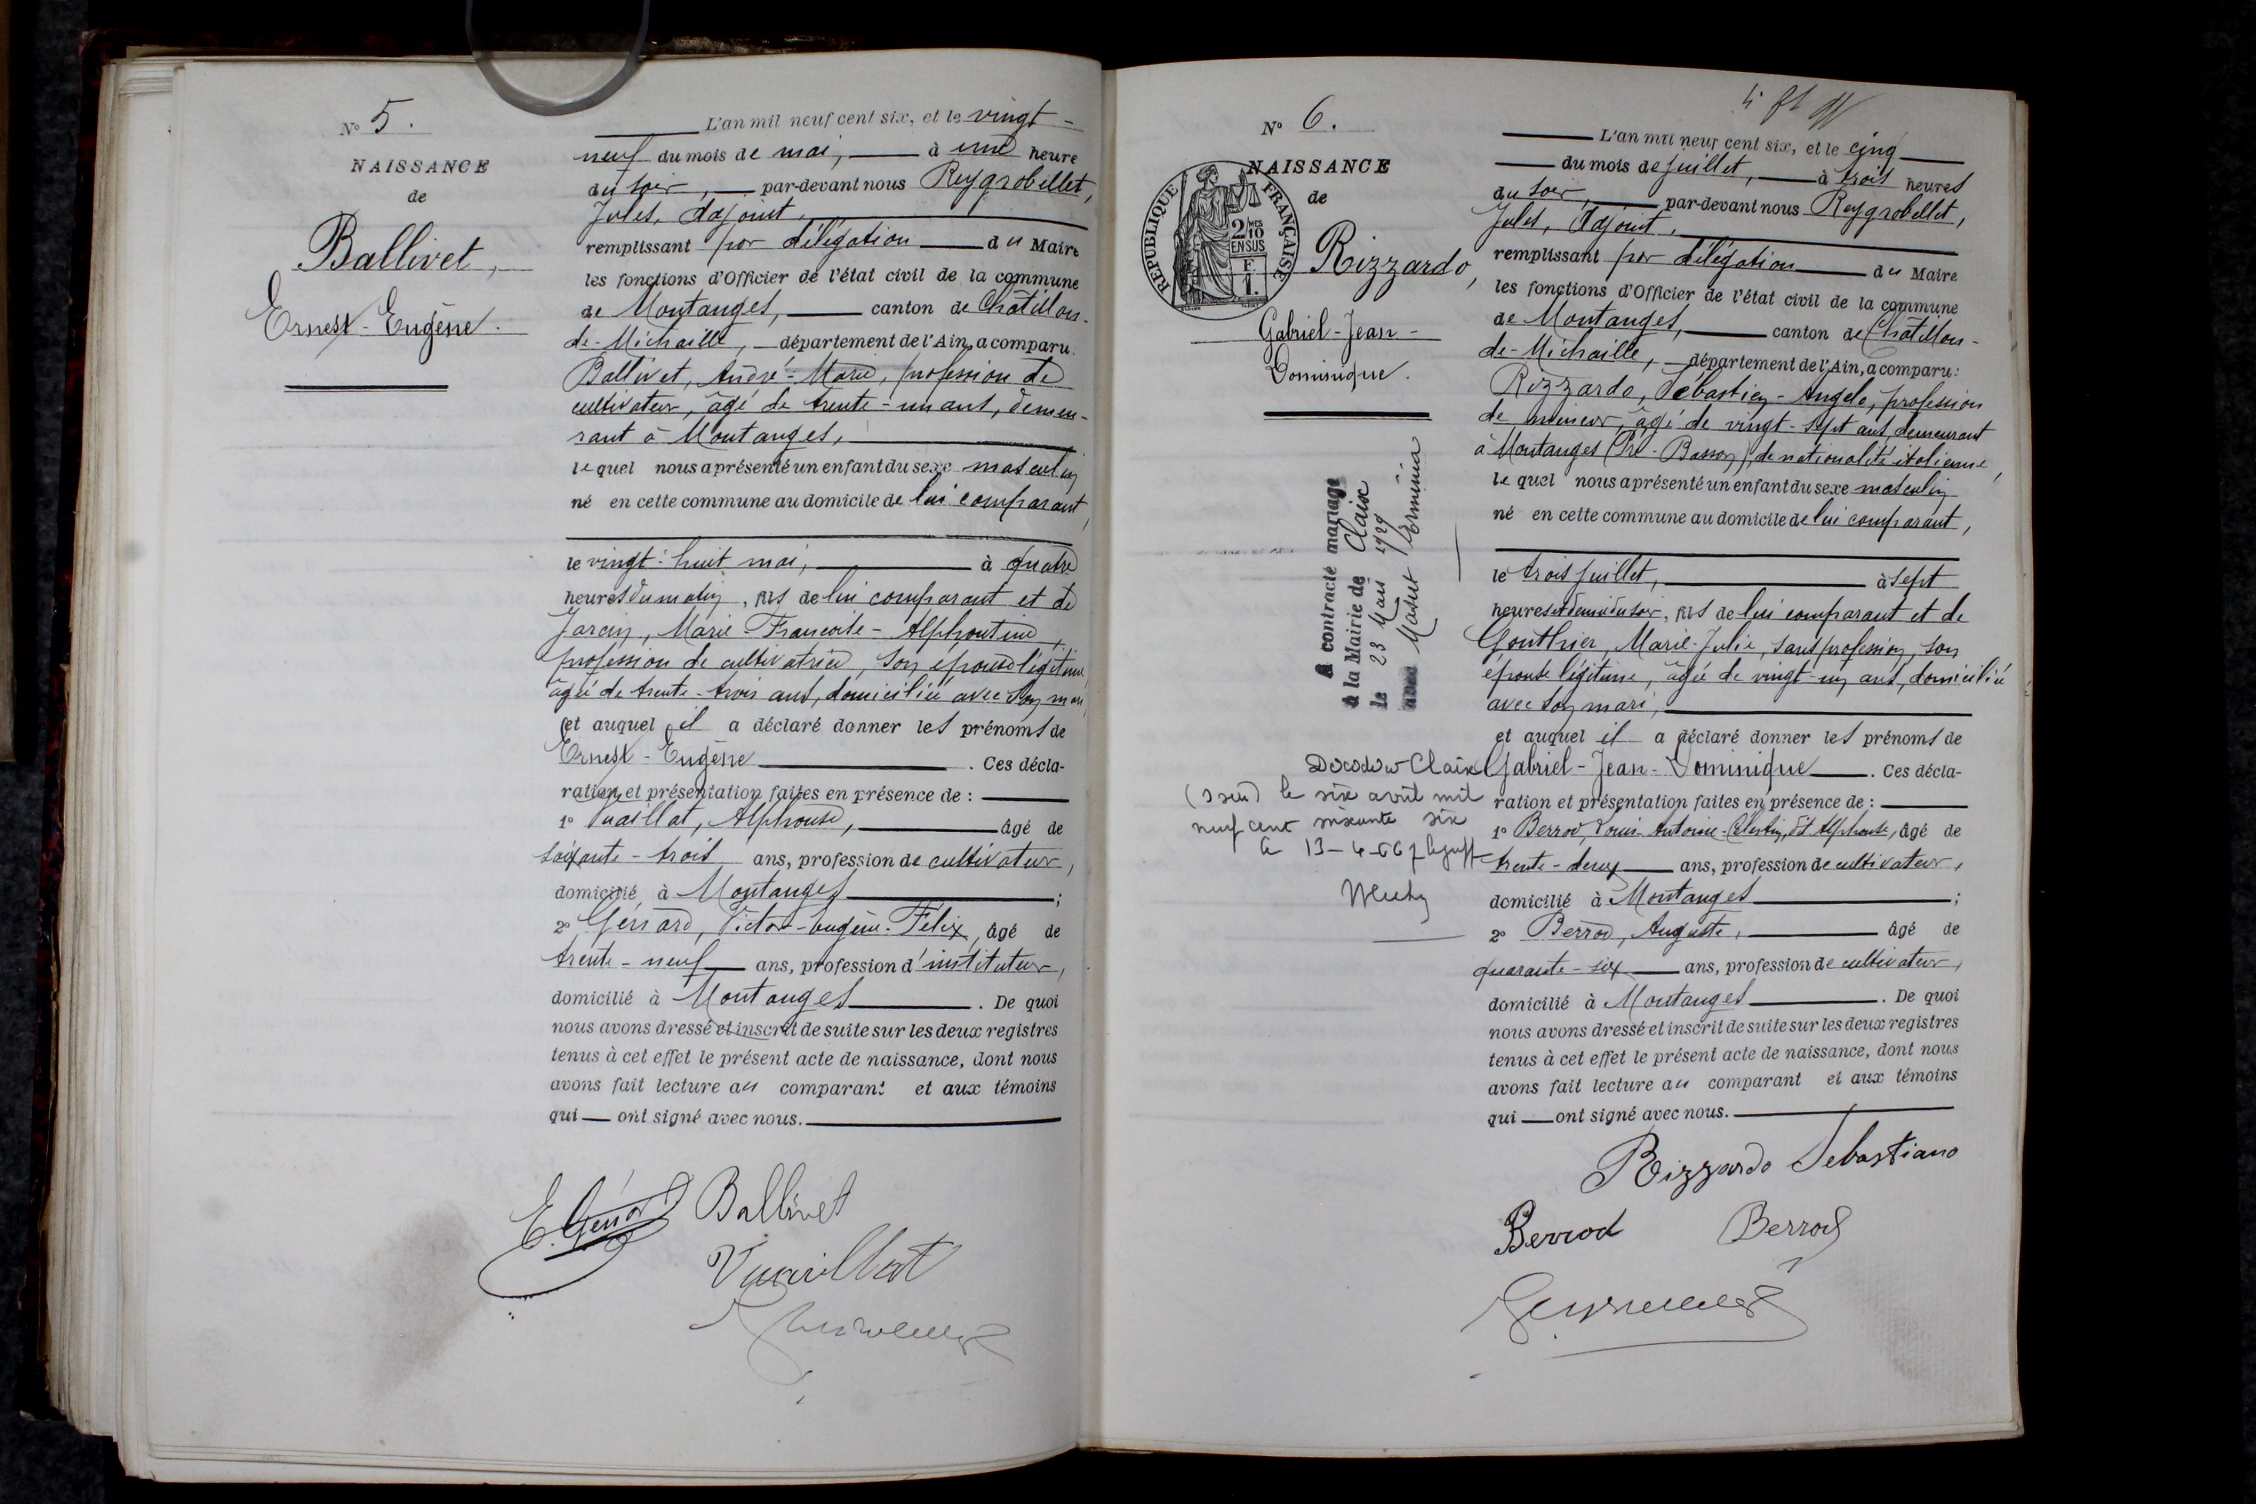 N° 5.
NAISSANCE
de
Ballivet,
Ernest-Eugène.
L'an mil neuf cent six, et le vingt-
neuf du mois de mai, à une heure
du soir, par-devant nous Reygrobellet,
Jules, Adjoint,
remplissant par délégation du Maire
les fonctions d'Officier de l'état civil de la commune
de Montanges, canton de Châtillon-
de-Michaille, département de l'Ain, a comparu:
Ballivet, André-Marie, profession de
cultivateur, âgé de trente-un ans, demeu-
rant à Montanges,
lequel nous a présenté un enfant du sexe masculin
né en cette commune au domicile de lui comparant,
le vingt-huit mai, à quatre
heures du matin, fils de lui comparant et de
Marie-Françoise-Alphonsine,
profession de cultivatrice, son épouse légitime,
âgée de trente-trois ans, domiciliée avec son mari,
et auquel il a déclaré donner les prénoms de
Ernest-Eugène. Ces décla-
ration et présentation faites en présence de :
1° Vuaillat, Alphonse, âgé de
soixante-trois ans, profession de cultivateur,
domicilié à Montanges;
2° Génard, Victor-Eugène-Félix, âgé de
trente-neuf ans, profession d'instituteur,
domicilié à Montanges. De quoi
nous avons dressé et inscrit de suite sur les deux registres
tenus à cet effet le présent acte de naissance, dont nous
avons fait lecture au comparant et aux témoins
qui ont signé avec nous.
E. Génard Ballivet
Vuaillat
N° 6.
NAISSANCE
de
RÉPUBLIQUE FRANÇAISE
2/10 MES
EN SUS
F.
1.
Rizzardo,
Gabriel-Jean-
Dominique.
A contracté mariage
à la Mairie de Claix
le 23 Mars 1929
avec Erminia
Claix
le six avril mil
neuf cent soixante six
L'an mil neuf cent six, et le cinq
du mois de juillet, à trois heures
du soir, par-devant nous Reygrobellet,
Jules, Adjoint,
remplissant par délégation du Maire
les fonctions d'Officier de l'état civil de la commune
de Montanges, canton de Châtillon-
de-Michaille, département de l'Ain, a comparu:
Rizzardo, Sébastien-Angelo, profession
de mineur, âgé de vingt-sept ans, demeurant
à Montanges (Pré-Basson), de nationalité italienne,
lequel nous a présenté un enfant du sexe masculin
né en cette commune au domicile de lui comparant,
le trois juillet, à sept
heures et demie du soir, fils de lui comparant et de
Gonthier, Marie-Julie, sans profession, son
épouse légitime, âgée de vingt-un ans, domiciliée
avec son mari,
et auquel il a déclaré donner les prénoms de
Gabriel-Jean-Dominique. Ces décla-
ration et présentation faites en présence de :
1° Berrod, Louis-Antoine-Célestin, dit Alphonse, âgé de
trente-deux ans, profession de cultivateur,
domicilié à Montanges;
2° Berrod, Auguste, âgé de
quarante-six ans, profession de cultivateur,
domicilié à Montanges. De quoi
nous avons dressé et inscrit de suite sur les deux registres
tenus à cet effet le présent acte de naissance, dont nous
avons fait lecture au comparant et aux témoins
qui ont signé avec nous.
Rizzardo Sebastiano
Berrod Berrod